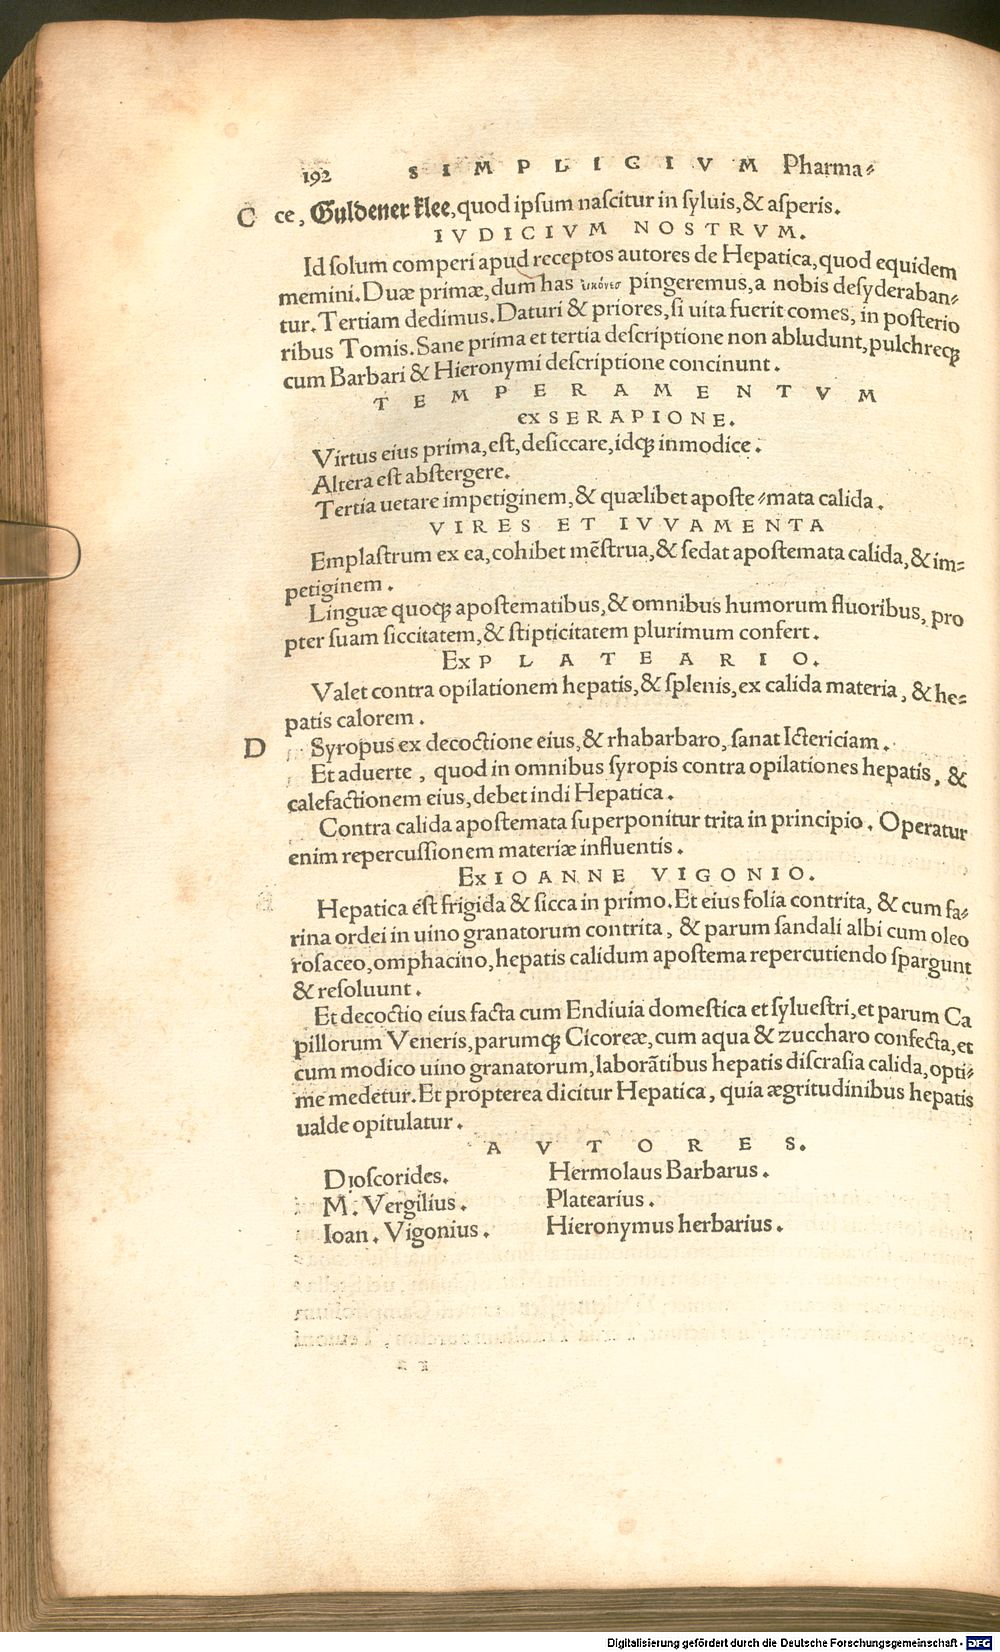 192 SIMPLICIVM Pharma⸗
C ce, Guldener klee, quod ipsum nascitur in syluis, & asperis.
IVDICIVM NOSTRVM.
Id solum comperi apud receptos autores de Hepatica, quod equidem
memini. Duæ primæ, dum has pingeremus, a nobis desyderaban⸗
tur. Tertiam dedimus. Daturi & priores, si uita fuerit comes, in posterio
ribus Tomis. Sane prima et tertia descriptione non abludunt, pulchreqꝫ
cum Barbari & Hieronymi descriptione concinunt.
TEMPERAMENTVM
ex SERAPIONE.
Virtus eius prima, est, desiccare, idqꝫ inmodice.
Altera est abstergere.
Tertia uetare impetiginem, & quælibet aposte⸗mata calida.
VIRES ET IVVAMENTA
Emplastrum ex ea, cohibet mẽstrua, & sedat apostemata calida, & im⸗
petiginem.
Linguæ quoqꝫ apostematibus, & omnibus humorum fluoribus, pro
pter suam siccitatem, & stipticitatem plurimum confert.
Ex PLATEARIO.
Valet contra opilationem hepatis, & splenis, ex calida materia, & he⸗
patis calorem.
D Syropus ex decoctione eius, & rhabarbaro, sanat Ictericiam.
Et aduerte, quod in omnibus syropis contra opilationes hepatis, &
calefactionem eius, debet indi Hepatica.
Contra calida apostemata superponitur trita in principio. Operatur
enim repercussionem materiæ influentis.
Ex IOANNE VIGONIO.
Hepatica est frigida & sicca in primo. Et eius folia contrita, & cum fa⸗
rina ordei in uino granatorum contrita, & parum sandali albi cum oleo
rosaceo, omphacino, hepatis calidum apostema repercutiendo spargunt
& resoluunt.
Et decoctio eius facta cum Endiuia domestica et syluestri, et parum Ca
pillorum Veneris, parumqꝫ Cicoreæ, cum aqua & zuccharo confecta, et
cum modico uino granatorum, laborãtibus hepatis discrasia calida, opti⸗
me medetur. Et propterea dicitur Hepatica, quia ægritudinibus hepatis
ualde opitulatur.
AVTORES.
Dioscorides. Hermolaus Barbarus.
M. Vergilius. Platearius.
Ioan. Vigonius. Hieronymus herbarius.
Digitalisierung gefördert durch die Deutsche Forschungsgemeinschaft - DFG